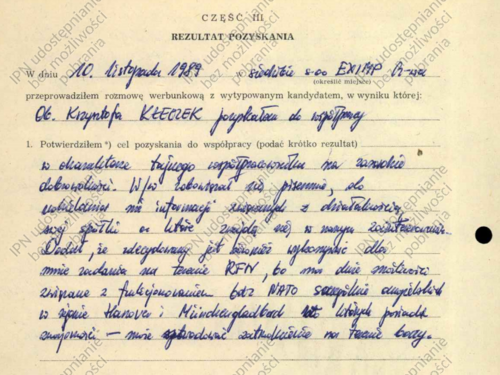 CZĘŚĆ III
REZULTAT POZYSKANIA
W dniu 10. listopada 1989 w siedzibie s-oo EXIMP W-wa
(określić miejsce)
przeprowadziłem rozmowę werbunkową z wytypowanym kandydatem, w wyniku której:
Ob. Krzysztofa KŁECZEK pozyskałem do współpracy
1. Potwierdziłem*) cel pozyskania do współpracy (podać krótko rezultat)
w charakterze tajnego współpracownika na zasadzie
dobrowolności. W/w zobowiązał się pisemnie, do
udzielania mi informacji związanych z działalnością
swej spółki o które znajdą się w naszym zainteresowaniu.
Dodał, że zdecydowany jest również wykonywać dla
mnie zadania na terenie RFN, bo ma duże możliwości
związane z funkcjonowaniem baz NATO szczególnie angielskich
w rejonie Hanower i Mönchengladbad w których posiada
znajomości – może zatrudnienie na terenie bazy.
IPN udostępnianie
bez możliwości
pobrania